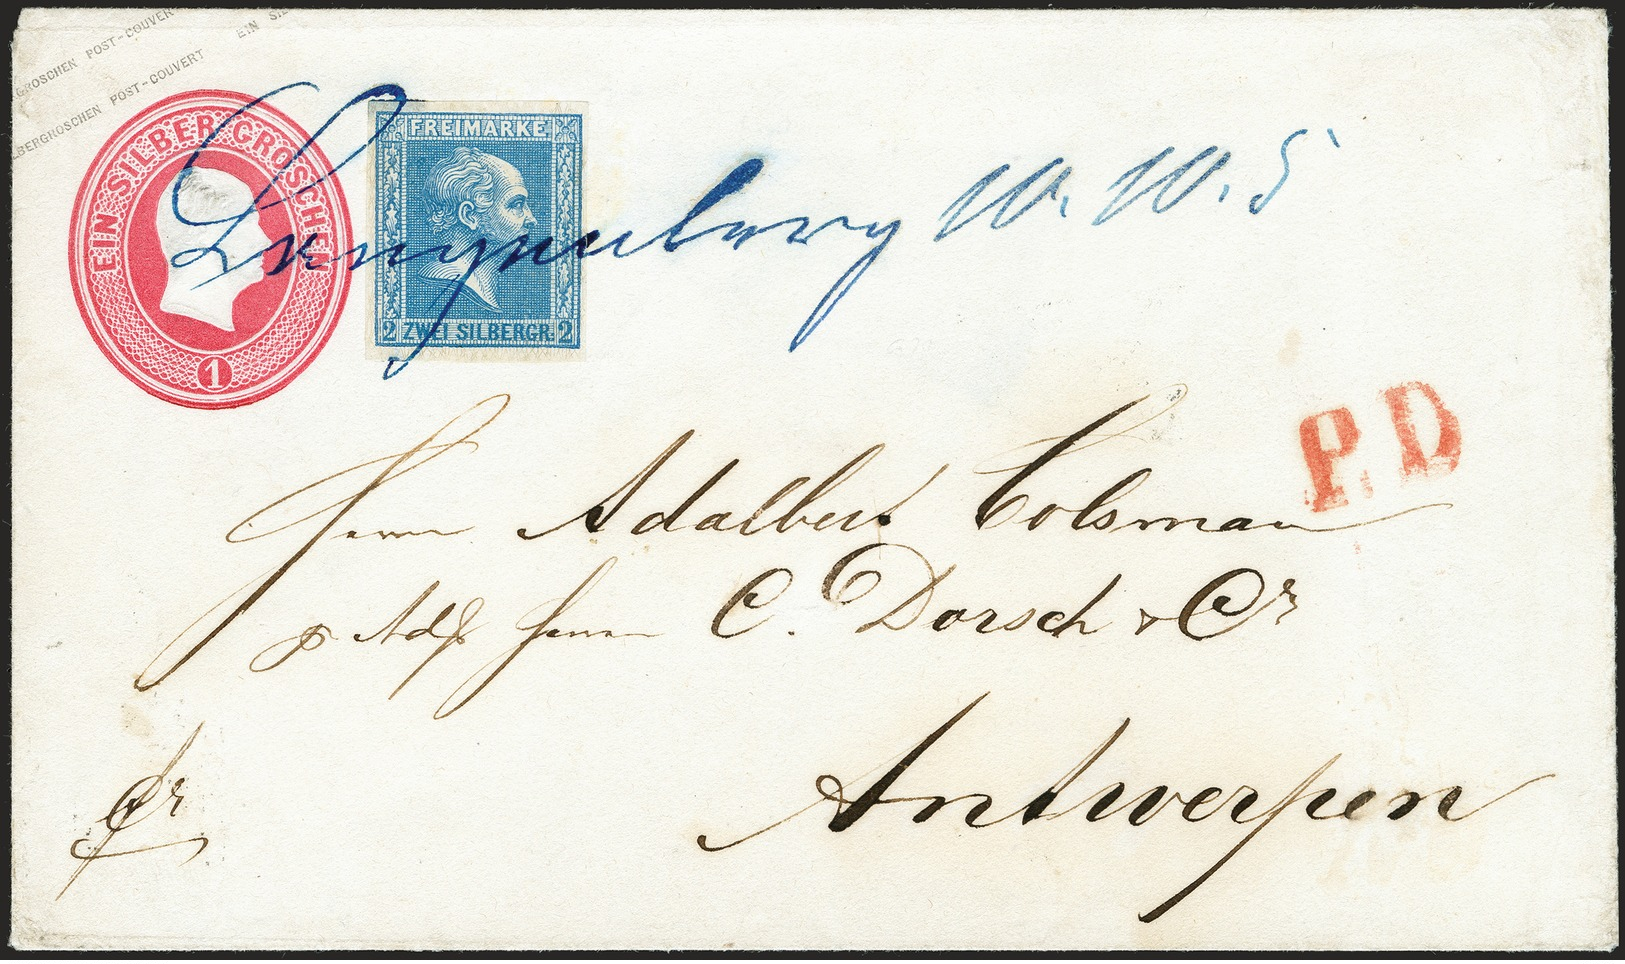 GROSCHEN POST-COUVER
EIN SIL
LBERGROSCHEN POST-COUVERT
EIN SILBER GROSCHEN
1
FREIMARKE
2 ZWEI SILBERGR. 2
Langenberg 10. 10. 5
P.D
Herrn Adalbert Colsman
p Adr Herrn C. Dorsch & Cr
fr
Antwerpen